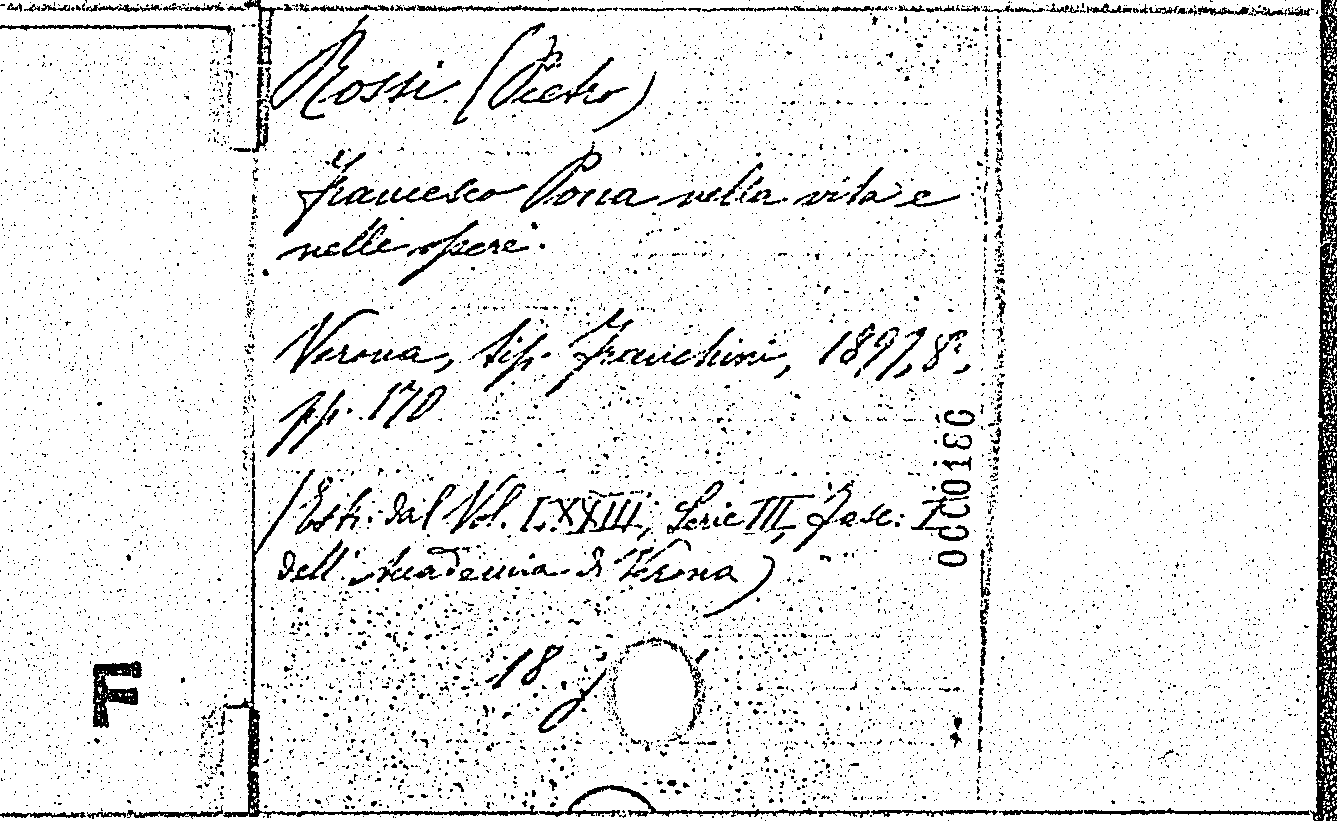 Rossi (Pietro)
Francesco Pona nella vita e
nelle opere.
Verona, tip. Franchini, 1897, 8º,
pp. 170
(Estr. dal Vol. LXXIII, Serie III, Fasc. I
dell'Accademia di Verona)
18. j
0000180
F